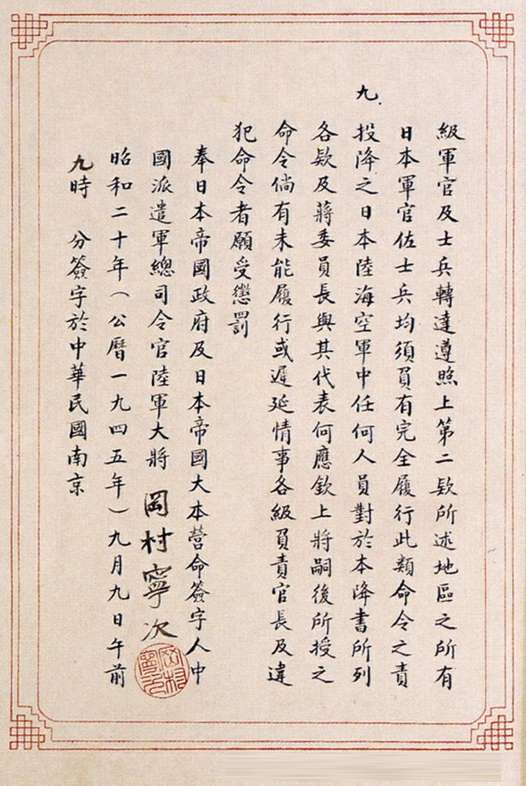 級軍官及士兵轉達遵照上第二欵所述地區之所有
日本軍官佐士兵均須負有完全履行此類命令之責
九、投降之日本陸海空軍中任何人員對於本降書所列
各欵及蔣委員長與其代表何應欽上將嗣後所授之
命令倘有未能履行或遲延情事各級負責官長及違
犯命令者願受懲罰
奉日本帝國政府及日本帝國大本營命簽字人中
國派遣軍總司令官陸軍大將 岡村寧次
岡村寧次
昭和二十年(公曆一九四五年)九月九日午前
九時 分簽字於中華民國南京